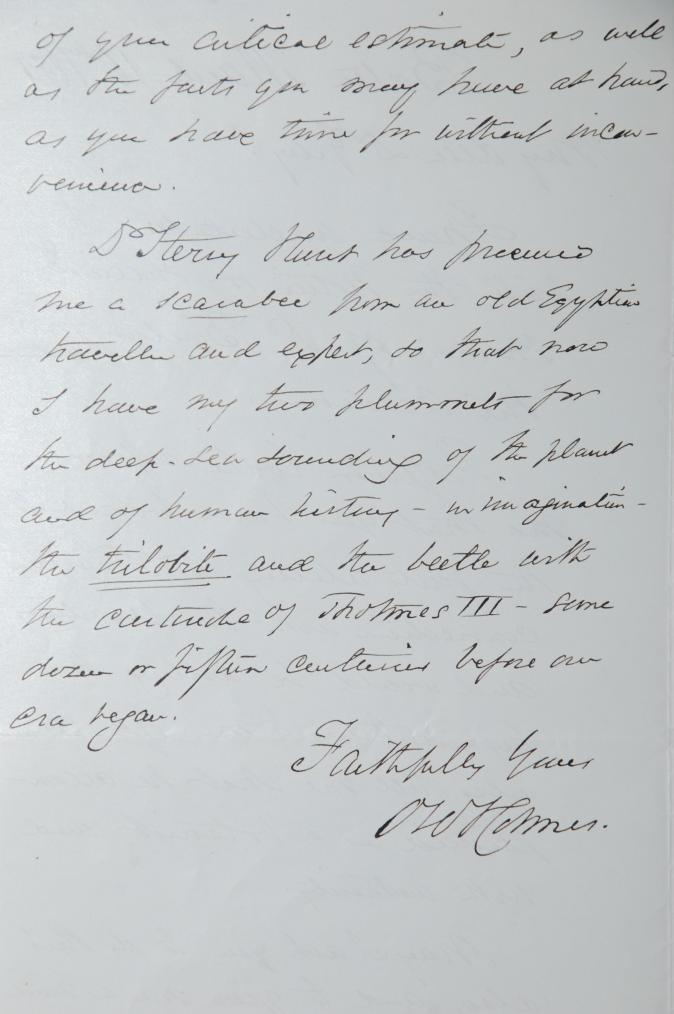 of your critical estimate, as well
as the facts you may have at hand,
as you have time for without incon-
venience.
Dr Sterry Hunt has procured
me a scarabee from an old Egyptian
traveller and expert, so that now
I have my two plummets for
the deep-sea sounding of the planet
and of human history - in imagination -
the trilobite and the beetle with
the cartouche of Thotmes III - some
dozen or fifteen centuries before our
era began.
Faithfully Yours
O W Holmes.